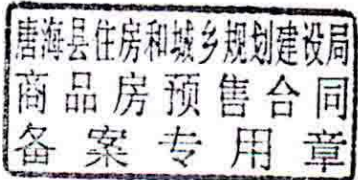 唐海县住房和城乡规划建设局
商品房预售合同
备案专用章